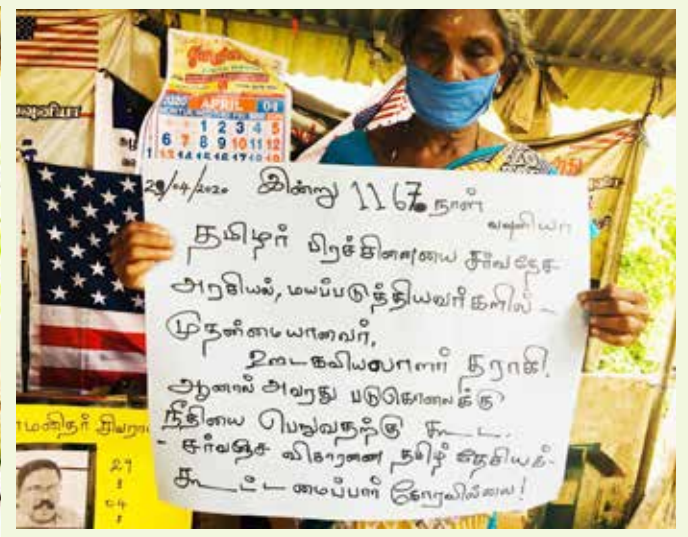 2020 APRIL 04
1 2 3 4 5
6 7 8 9 10 11 12
13 14 15 16 17 18 19
வுனியா
29/04/2020 இன்று 1167 நாள்
வவுனியா
தமிழர் பிரச்சினையை சர்வதேச
அரசியல், மயப்படுத்தியவர்களில் -
முதன்மையானவர்,
ஊடகவியலாளர் தராகி.
ஆனால் அவரது படுகொலைக்கு
நீதியை பெறுவதற்கு கூட.
- சர்வதேச விசாரணை தமிழ் தேசியக்-
கூட்டமைப்பார் கோரவில்லை!
மனிதர் சிவரா
29
04